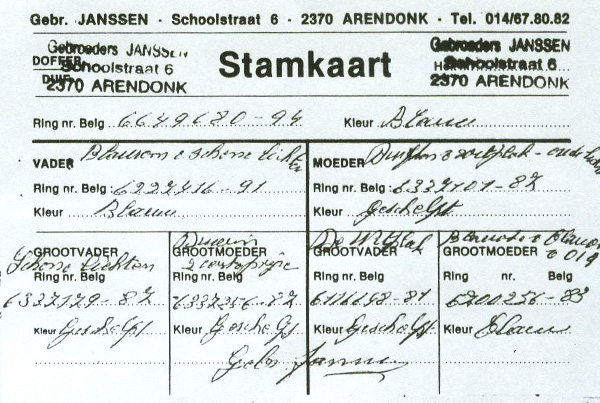 Gebr. JANSSEN - Schoolstraat 6 - 2370 ARENDONK - Tel. 014/67.80.82
Gebroeders JANSSEN
DOFFER
Schoolstraat 6
DUIF
2370 ARENDONK
Stamkaart
Gebroeders JANSSEN
Schoolstraat 6
2370 ARENDONK
Ring nr. Belg 6649680-94 Kleur Blauw
VADER
Ring nr. Belg : 6227416-91
Kleur Blauw
MOEDER
Ring nr. Belg : 6337101-82
Kleur Geschelpt
GROOTVADER
Schone lichten
Ring nr. Belg
6337129-82
Kleur Geschelpt
GROOTMOEDER
Ring nr. Belg
6337256-82
Kleur Geschelpt
GROOTVADER
Ring nr. Belg
6116698-81
Kleur Geschelpt
GROOTMOEDER
Ring nr. Belg
6200256-83
Kleur Blauw
Gebr Janssen